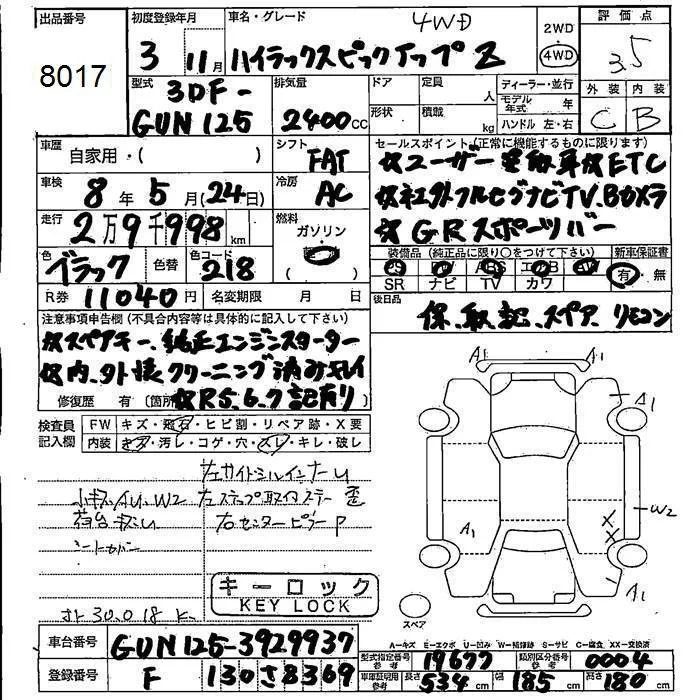 出品番号
8017
初度登録年月
3 11月
車名・グレード
4WD
ハイラックスピックアップ Z
2WD
4WD
評価点
3.5
外装 内装
C B
型式
3DF-
GUN125
排気量
2400cc
ドア
定員
人
形状
積載
kg
ディーラー・並行
モデル年式 年
ハンドル 左・右
車歴
自家用・( )
シフト
FAT
車検
8年5月(24日)
冷房
AC
走行
2万9千998km
燃料
ガソリン
( )
色
ブラック
色替
色コード
218
R券 11040円
名変期限 月 日
セールスポイント(正常に機能するものに限ります)
☆ユーザー買取車☆ETC
☆社外フルセグナビTV、Bカメラ
☆GRスポーツバー
装備品(純正品に限り○をつけて下さい)
新車保証書
PS PW ABS エアB AW
有・無
SR ナビ TV カワ
後日品
保、取、記、スペア、リモコン
注意事項申告欄(不具合内容等は具体的に記入して下さい)
☆スペアキー、純正エンジンスターター
☆内、外装クリーニング済みキレイ
修復歴 有(箇所 ☆R5、6、7記有り
検査員記入欄
FW キズ・飛石・ヒビ割・リペア跡・X要
内装 キズ・汚レ・コゲ・穴・スレ・キレ・破レ
左サイドシルインナーU
小キズ、AU、W2
左ステップ取付ステー歪
荷台キズU
右センターピラーP
シートカバー
キーロック
KEY LOCK
A1 A1
A1
W2
A1
X
X
A1
スペア
A-キズ E-エクボ U-凹み W-補修跡 S-サビ C-腐食 XX-交換済
車台番号
GUN125-3929937
登録番号
F 130さ8369
型式指定番号 参考
19677
類別区分番号 参考
0004
車庫証明用 参考
長さ 534cm 幅 185cm 高さ 180cm